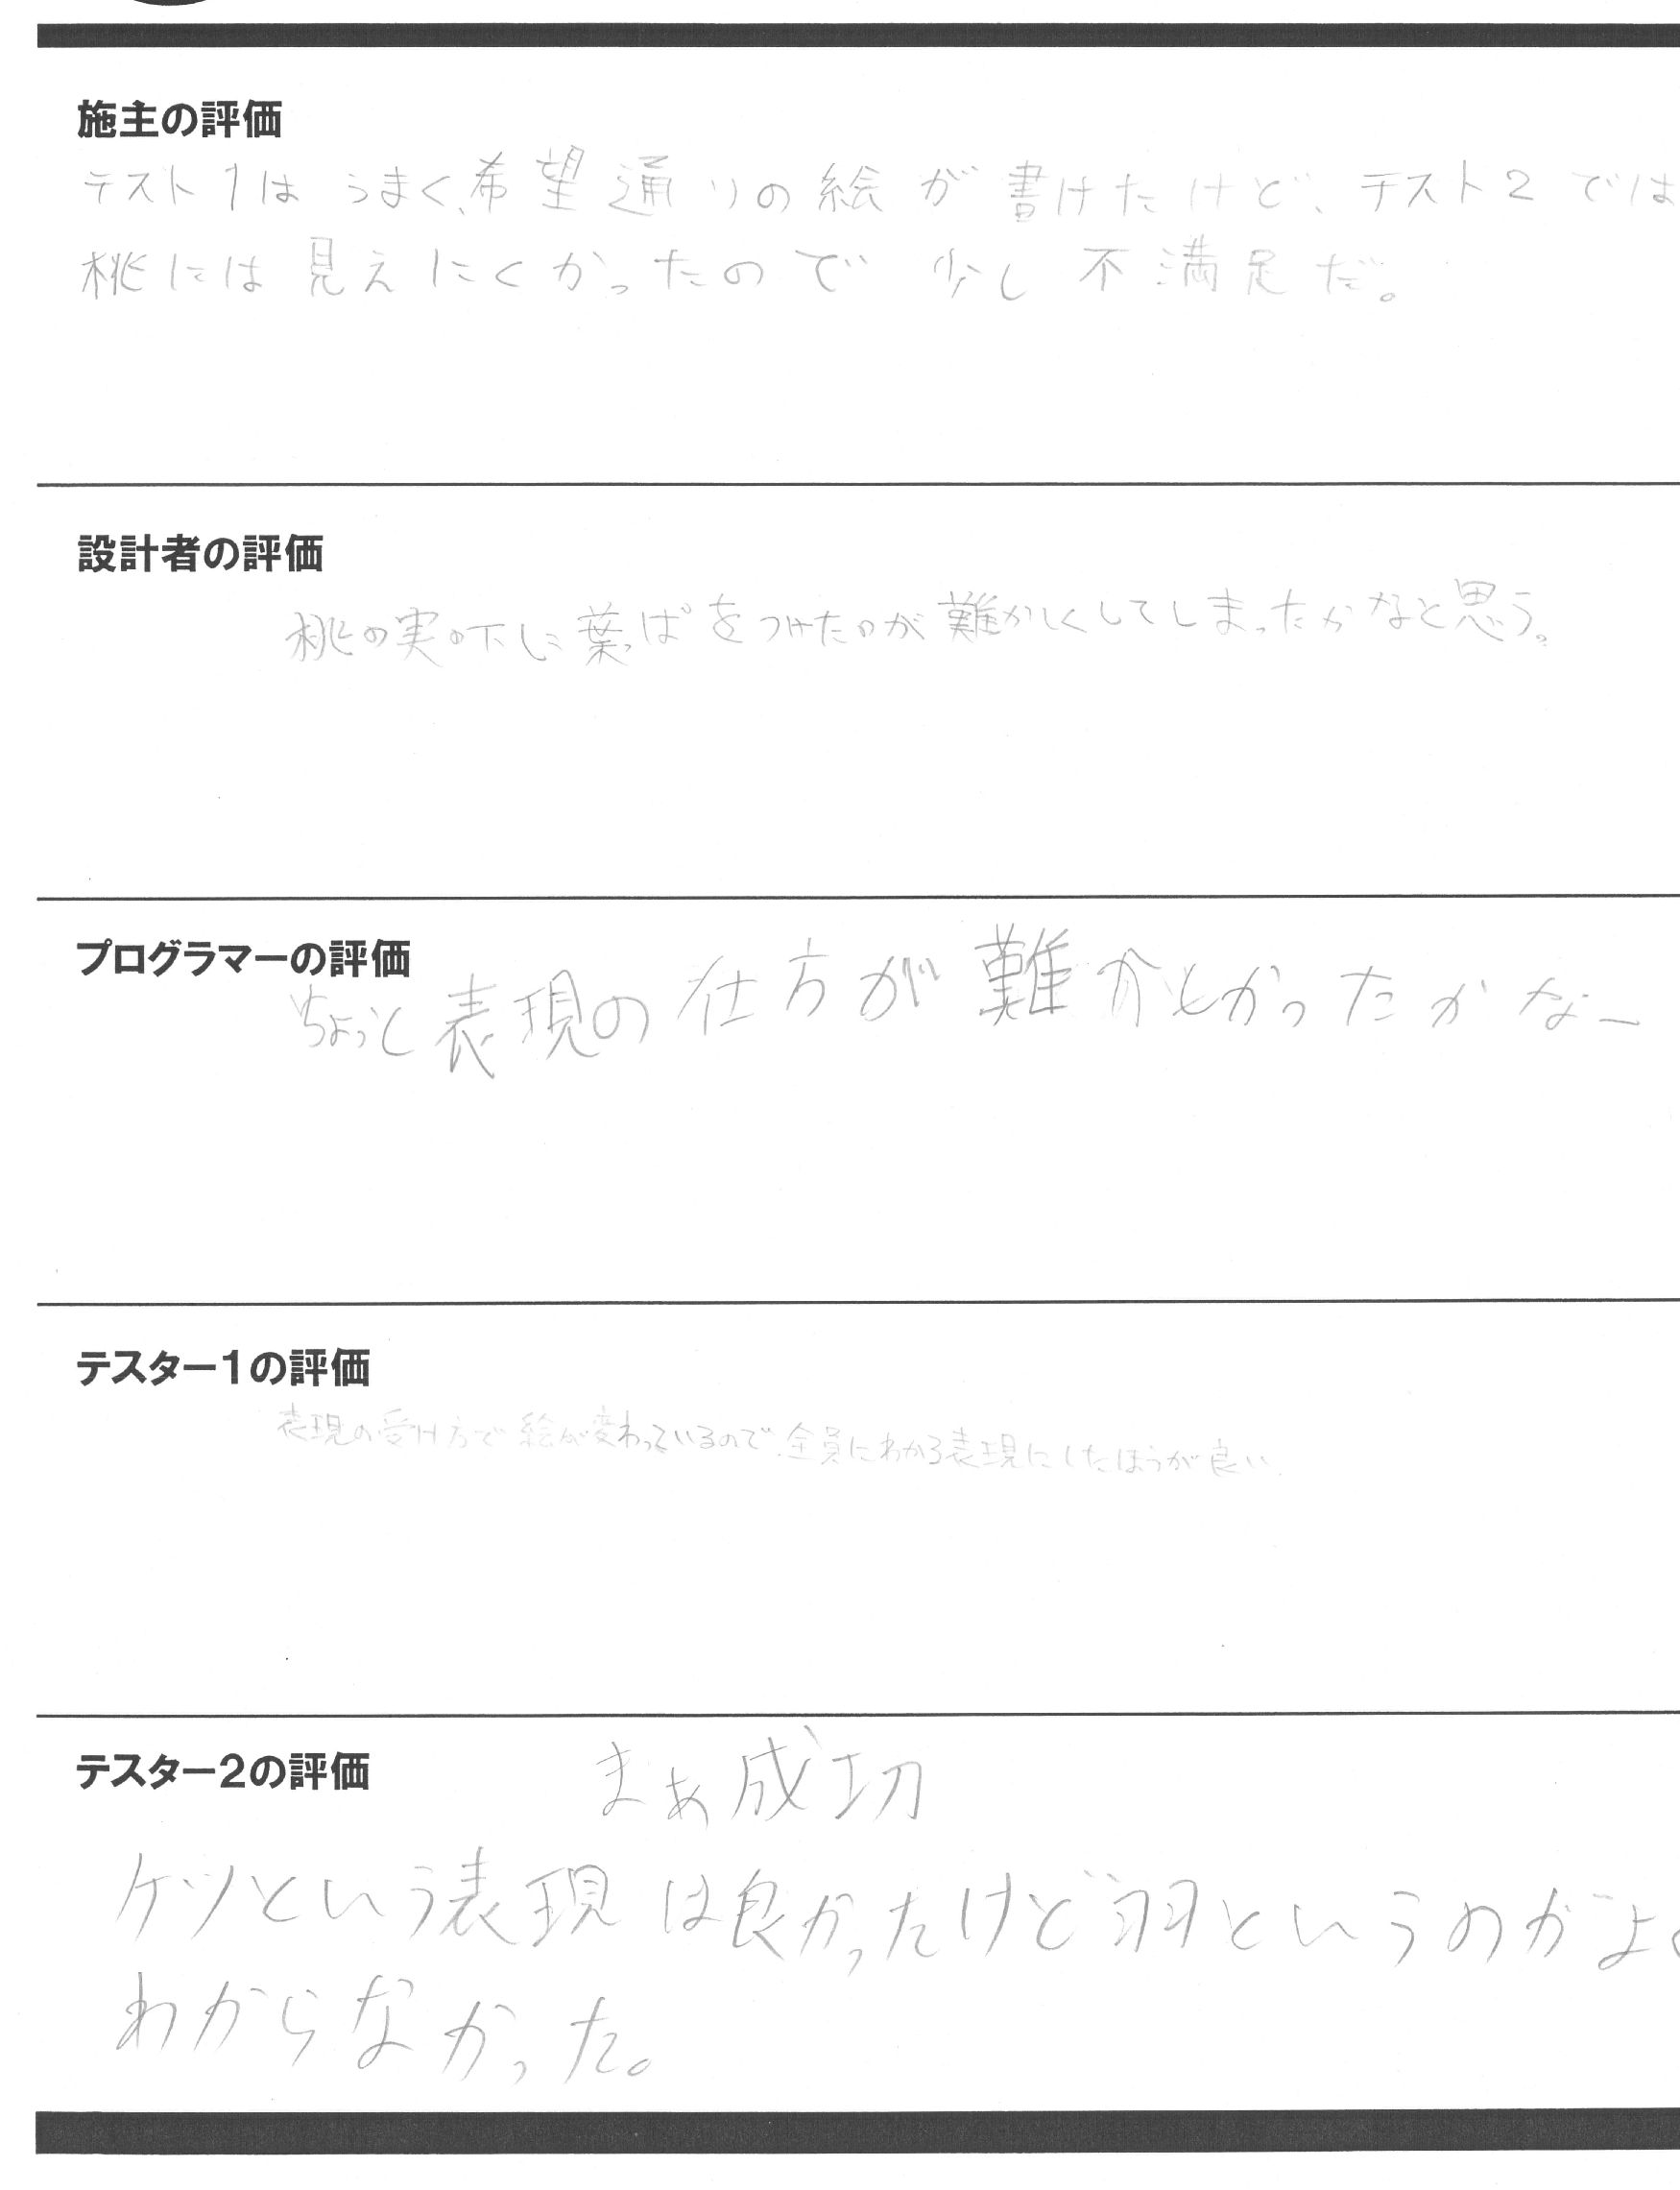 施主の評価
テスト1は うまく、希望通りの絵が書けたけど、テスト2では
桃には見えにくかったので少し不満足だ。
設計者の評価
桃の実の下に葉っぱをつけたのが難かしくしてしまったかなと思う。
プログラマーの評価
ちょっと表現の仕方が難かしかったかなー
テスター1の評価
表現の受け方で絵が変わっているので、全員にわかる表現にしたほうが良い。
テスター2の評価
まぁ成功
ケツという表現は良かったけど羽というのがよ
わからなかった。